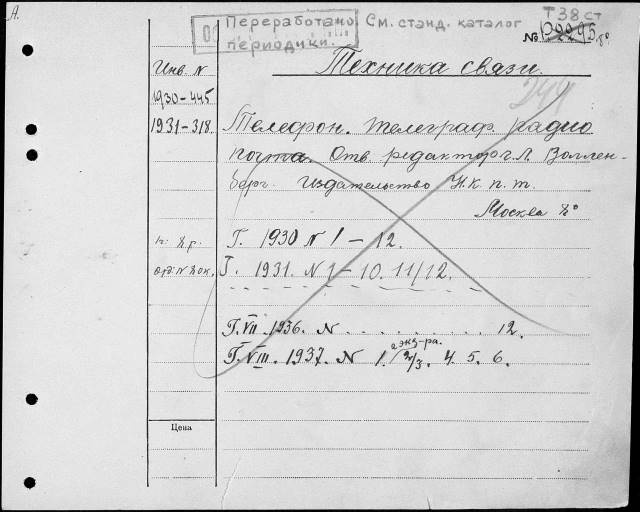 А.
Переработано. См. станд. каталог
периодики.
Т 38 ст
№ 8°
Инв. N
1930-445
1931-318.
Техника связи.
244
Телефон. Телеграф. Радио
почта. Отв. редактор г. Л. Воллен-
берг. издательство Н.к.п.т.
Москва 8°
Г. 1930 N 1 - 12.
Г. 1931. N 1 - 10. 11/12.
Г. VII 1936. N . . . . . . . . . . 12.
2 экз-ра.
Г. VIII. 1937. N 1. 2/3. 4. 5. 6.
Цена